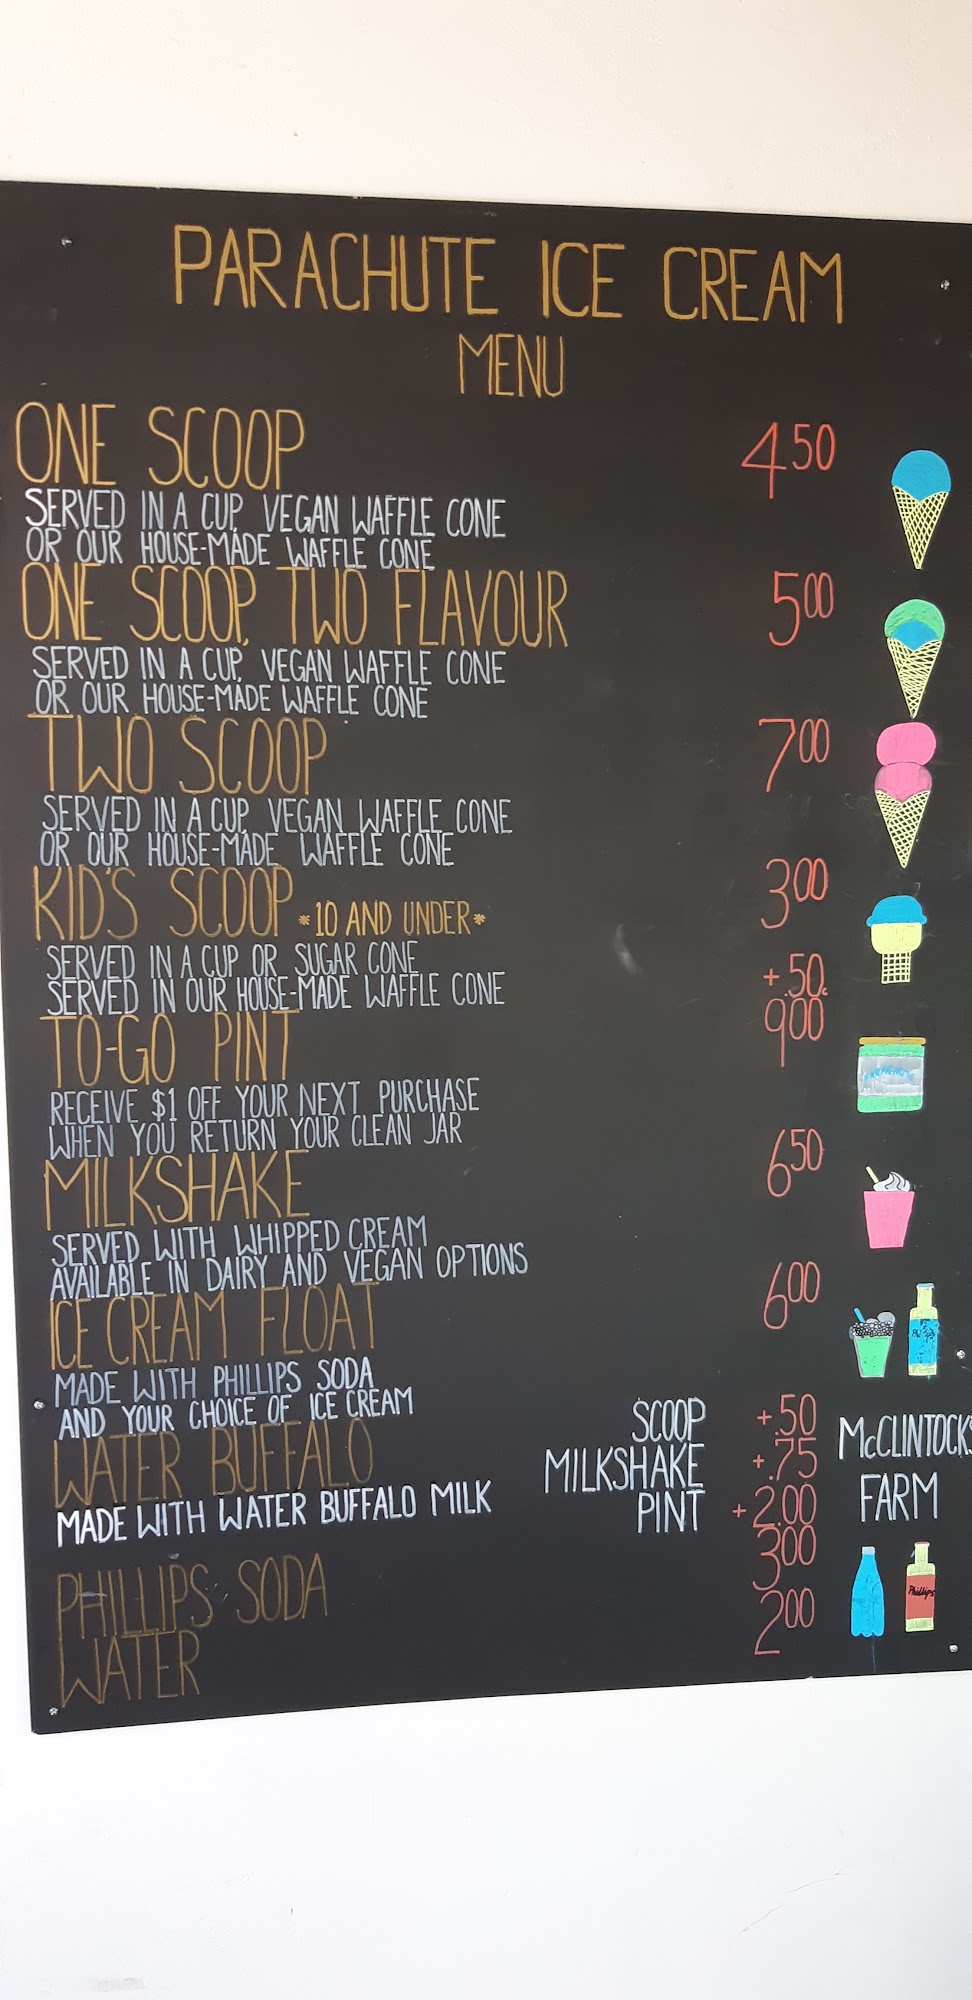 PARACHUTE ICE CREAM
MENU
ONE SCOOP 4.50
SERVED IN A CUP, VEGAN WAFFLE CONE
OR OUR HOUSE-MADE WAFFLE CONE
ONE SCOOP, TWO FLAVOUR 5.00
SERVED IN A CUP, VEGAN WAFFLE CONE
OR OUR HOUSE-MADE WAFFLE CONE
TWO SCOOP 7.00
SERVED IN A CUP, VEGAN WAFFLE CONE
OR OUR HOUSE-MADE WAFFLE CONE
KID'S SCOOP *10 AND UNDER* 3.00
SERVED IN A CUP OR SUGAR CONE
SERVED IN OUR HOUSE-MADE WAFFLE CONE +.50
TO-GO PINT 9.00
RECEIVE $1 OFF YOUR NEXT PURCHASE
WHEN YOU RETURN YOUR CLEAN JAR
MILKSHAKE 6.50
SERVED WITH WHIPPED CREAM
AVAILABLE IN DAIRY AND VEGAN OPTIONS
ICE CREAM FLOAT 6.00
MADE WITH PHILLIPS SODA
AND YOUR CHOICE OF ICE CREAM
WATER BUFFALO SCOOP +.50 McCLINTOCKS
MILKSHAKE +.75
MADE WITH WATER BUFFALO MILK PINT +2.00 FARM
PHILLIPS SODA 3.00
WATER 2.00
Phillips